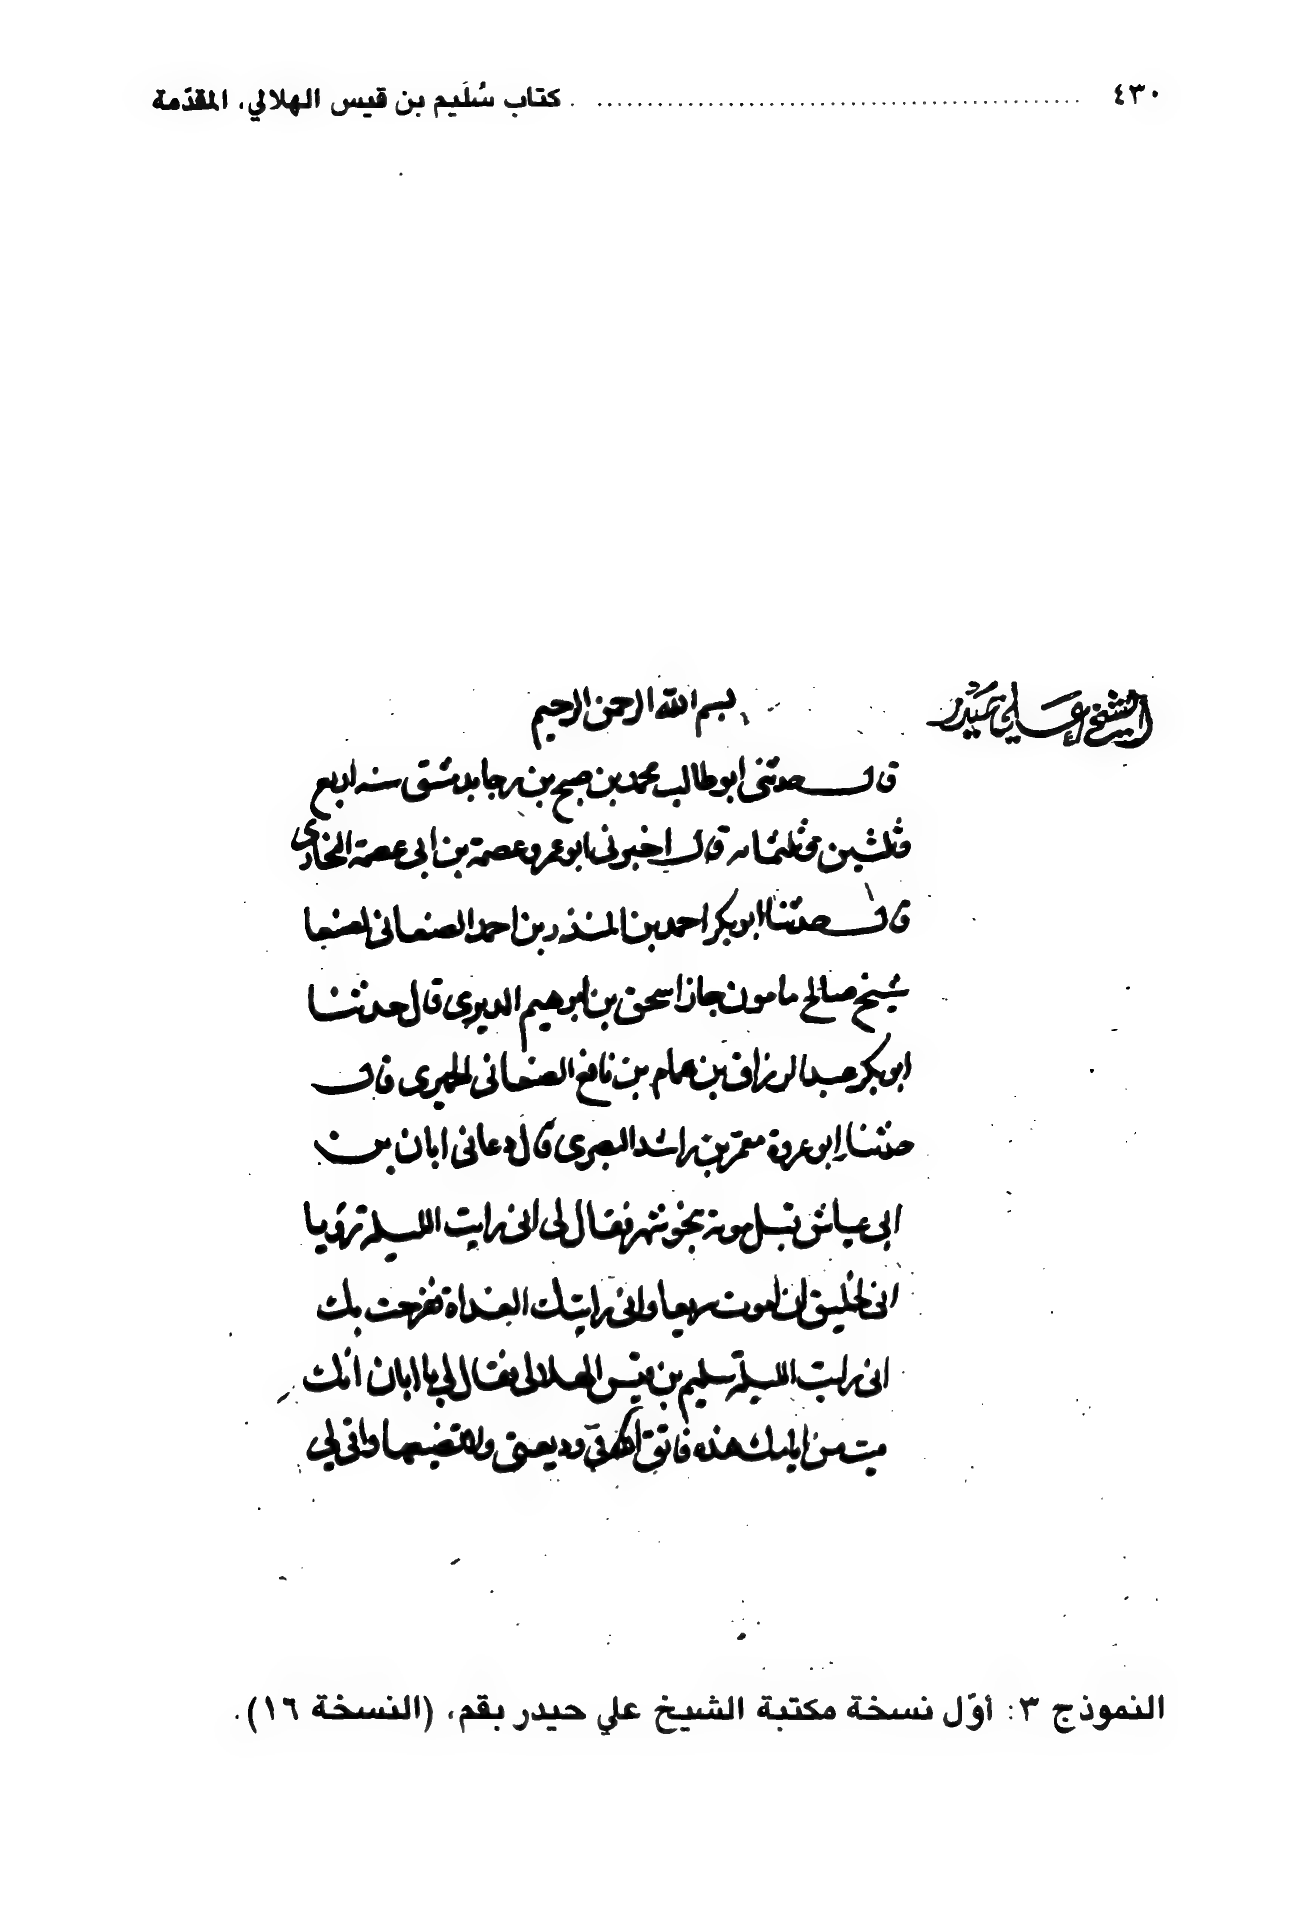 ٤٣٠ ........ كتاب سُلَيم بن قيس الهلالي، المقدّمة
الشيخ علي حيدر
بسم الله الرحمن الرحيم
قال حدثنى ابو طالب محمد بن صبح بن رجا بدمشق سنه اربع
وثلثين وثلثمائه قال اخبرنى ابو عمرو عصمة بن ابى عصمة البخارى
قال حدثنا ابو بكر احمد بن المنذر بن احمد الصنعانى بصنعا
شيخ صالح مامون جار اسحق بن ابرهيم الديرى قال حدثنا
ابو بكر عبد الرزاق بن همام بن نافع الصنعانى الحميرى قال
حدثنا ابو عروة معمر بن راشد البصرى قال دعانى ابان بن
ابى عياش قبل موته بنحو شهر فقال لى انى رايت الليلة رؤيا
انى لخليق ان اموت سريعا وانى رايتك الغداة ففرحت بك
انى رايت الليلة سليم بن قيس الهلالى فقال لى يا ابان انك
ميت من ايامك هذه فاتق الله فى وديعتى ولا تضيعها وافى لى
النموذج ٣: أوّل نسخة مكتبة الشيخ علي حيدر بقم، (النسخة ١٦).